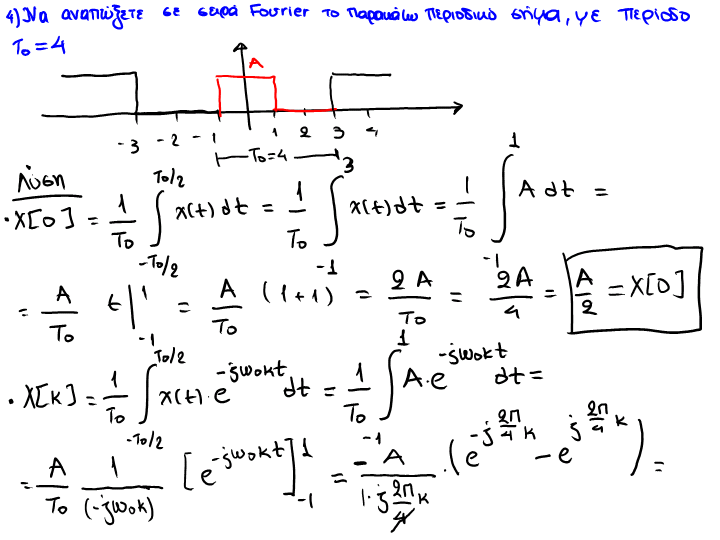 4) Να αναπτύξετε σε σειρά Fourier το παρακάτω περιοδικό σήμα, με περίοδο
T₀ = 4
A
-3 -2 -1 1 2 3 4
T₀=4
Λύση
• X[0] = 1/T₀ ∫_{-T₀/2}^{T₀/2} x(t) dt = 1/T₀ ∫_{-1}^{3} x(t) dt = 1/T₀ ∫_{-1}^{1} A dt =
= A/T₀ t|_{-1}^{1} = A/T₀ (1+1) = 2A/T₀ = 2A/4 = A/2 = X[0]
• X[k] = 1/T₀ ∫_{-T₀/2}^{T₀/2} x(t)·e^{-jω₀kt} dt = 1/T₀ ∫_{-1}^{1} A·e^{-jω₀kt} dt =
= A/T₀ 1/(-jω₀k) [e^{-jω₀kt}]_{-1}^{1} = -A/(1·j 2π/4 k) · (e^{-j 2π/4 k} - e^{j 2π/4 k}) =